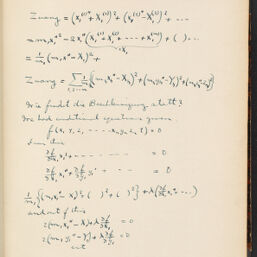 Zwang = (X₁⁽¹⁾ + X₁⁽¹⁾)² + (x₁⁽¹⁾ - X₁⁽¹⁾)² + ...
= m₁x₁''² - 2x₁'' (X₁⁽¹⁾ + X₁⁽²⁾ + ... + X₁⁽ⁿ⁾) + ( ) ...
X₁
= 1/m₁ (m₁x₁'' - X₁)² +
Zwang = ∑ 1/m₁ {(m₁x₁'' - X₁)² + (m₁y₁'' - Y₁)² + (m₁z₁'' - Z₁)²}
1, 2 ... n
Wie findet die Beschleunigung statt?
We had conditional equations given
f(x, y, z, ... xₙ yₙ zₙ t) = 0
From this
∂f/∂x₁ x₁'' + ... = 0
∂f/∂x₁ x₁'' + ... = 0
1/m₁ {(m₁x₁'' - X₁)² + ( )² + ( )²} + λ(∂f/∂x₁ x₁'' ...)
and out of this
2(m₁x₁'' - X₁) + λ ∂f/∂x₁ = 0
2(m₁y₁'' - Y₁) + λ ∂f/∂y₁ = 0